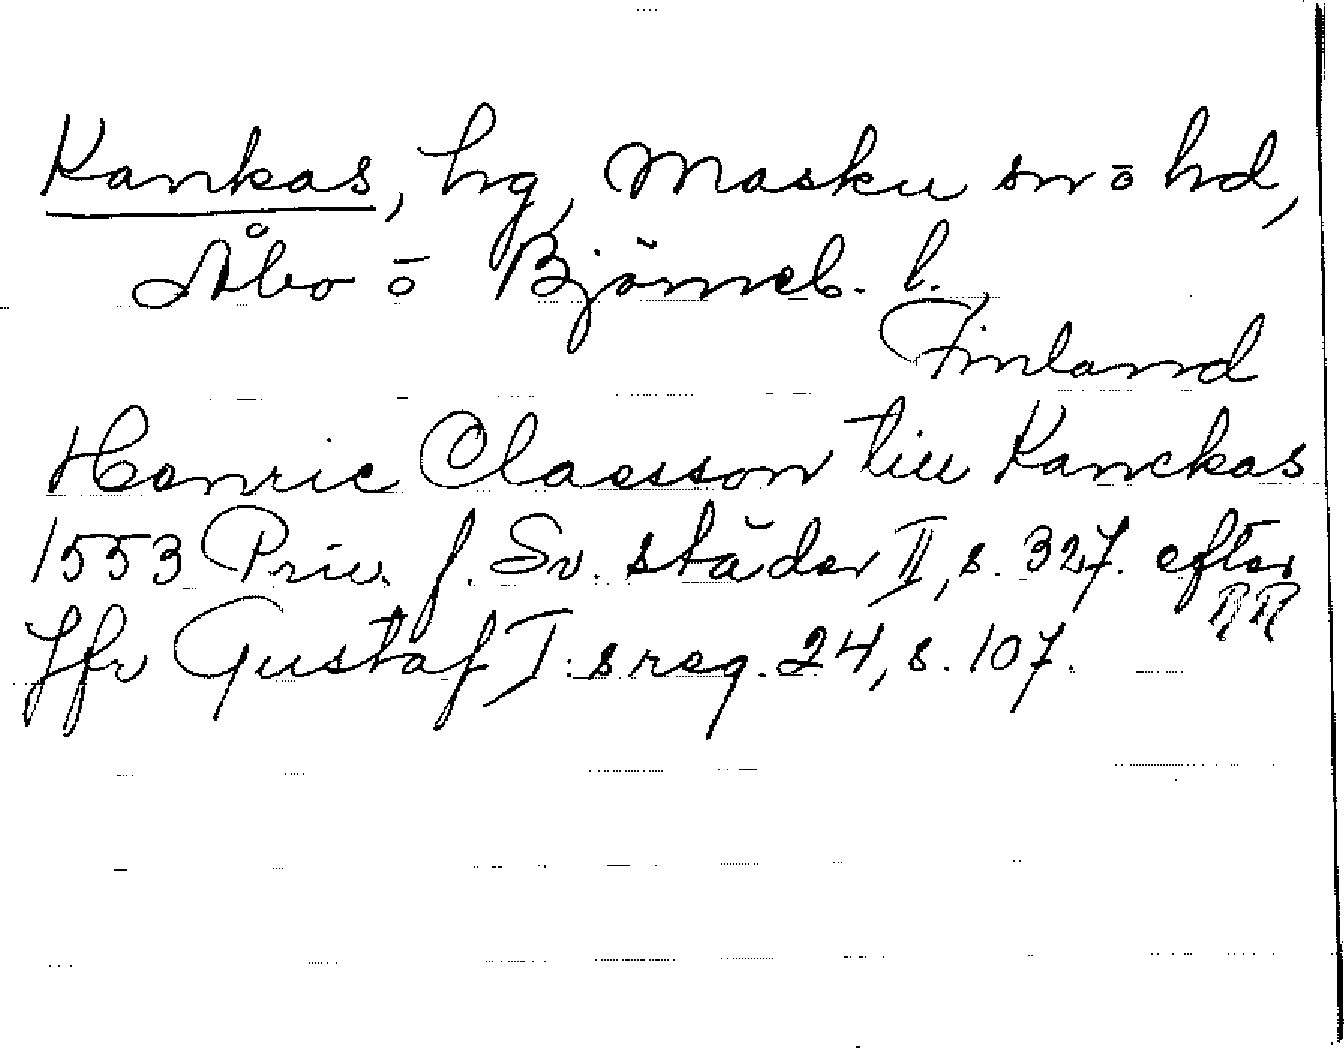 Kankas, hg, Masku sn ō hd,
Åbo ō Björneb. l.
Finland
Henric Claesson till Kanckas
1553 Priv. f. Sv. städer II, s. 327. efter
RR
Jfr Gustaf I:s reg. 24, s. 107.